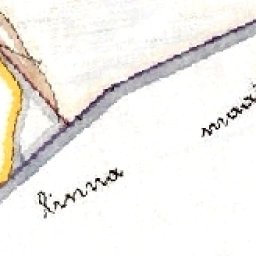 linna
maa